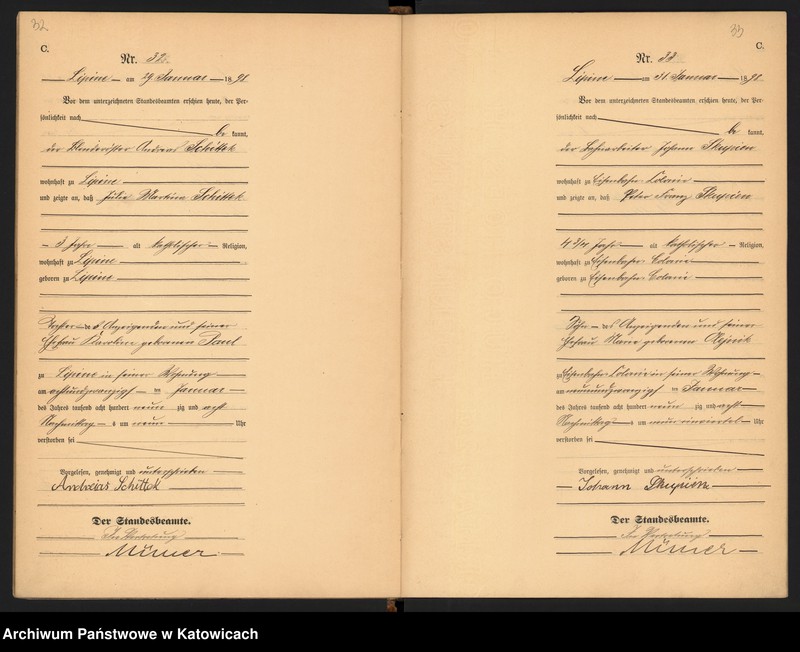 32
C.
Nr. 32.
Lipine am 29 Januar 1898
Vor dem unterzeichneten Standesbeamten erschien heute, der Per-
sönlichkeit nach
be kannt,
der Andreas Schittek
wohnhaft zu Lipine
und zeigte an, daß Julie Martina Schittek
3 Jahr alt katholischer Religion,
wohnhaft zu Lipine
geboren zu Lipine
Tochter des Anzeigenden und seiner
Ehefrau Karoline geborenen Paul
zu Lipine in seiner Wohnung
am achtundzwanzigst en Januar
des Jahres tausend acht hundert neun zig und acht
Nachmittags um neun Uhr
verstorben sei
Vorgelesen, genehmigt und unterschrieben
Andreas Schittek
Der Standesbeamte.
In Vertretung
33
C.
Nr. 33
Lipine am 31 Januar 1898
Vor dem unterzeichneten Standesbeamten erschien heute, der Per-
sönlichkeit nach
be kannt,
der Bahnarbeiter Johann Skupien
wohnhaft zu Eisenbahn Colonie
und zeigte an, daß Peter Franz Skupien
4 3/4 Jahr alt katholischer Religion,
wohnhaft zu Eisenbahn Colonie
geboren zu Eisenbahn Colonie
Sohn des Anzeigenden und seiner
Ehefrau Marie geborenen
zu Eisenbahn Colonie in seiner Wohnung
am neunundzwanzigst en Januar
des Jahres tausend acht hundert neun zig und acht
Nachmittags um neun einviertel Uhr
verstorben sei
Vorgelesen, genehmigt und unterschrieben
Johann Skupien
Der Standesbeamte.
In Vertretung
Archiwum Państwowe w Katowicach